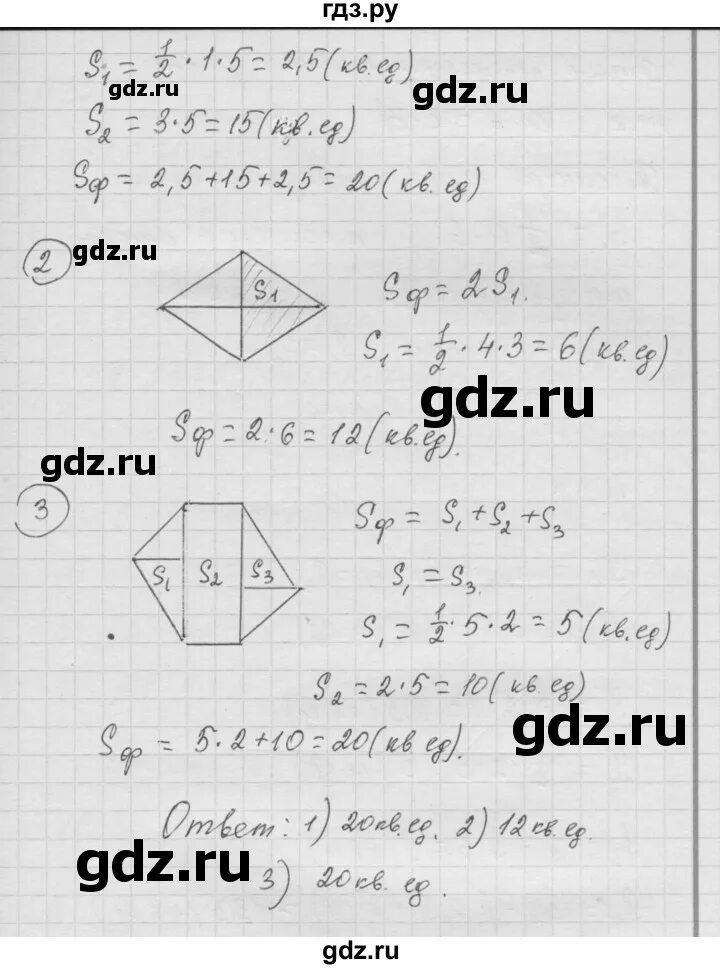 гдз.ру
S₁ = 1/2 · 1 · 5 = 2,5 (кв. ед)
gdz.ru
gdz.ru
S₂ = 3 · 5 = 15 (кв. ед)
Sф = 2,5 + 15 + 2,5 = 20 (кв. ед)
2
gdz.ru
S1
Sф = 2S₁.
S₁ = 1/2 · 4 · 3 = 6 (кв. ед)
gdz.ru
Sф = 2 · 6 = 12 (кв. ед).
gdz.ru
3
Sф = S₁ + S₂ + S₃
S₁ S₂ S₃
S₁ = S₃.
S₁ = 1/2 · 5 · 2 = 5 (кв. ед)
S₂ = 2 · 5 = 10 (кв. ед)
gdz.ru
Sф = 5 · 2 + 10 = 20 (кв ед).
Ответ: 1) 20 кв. ед. 2) 12 кв. ед.
gdz.ru
3) 20 кв. ед.
gdz.ru